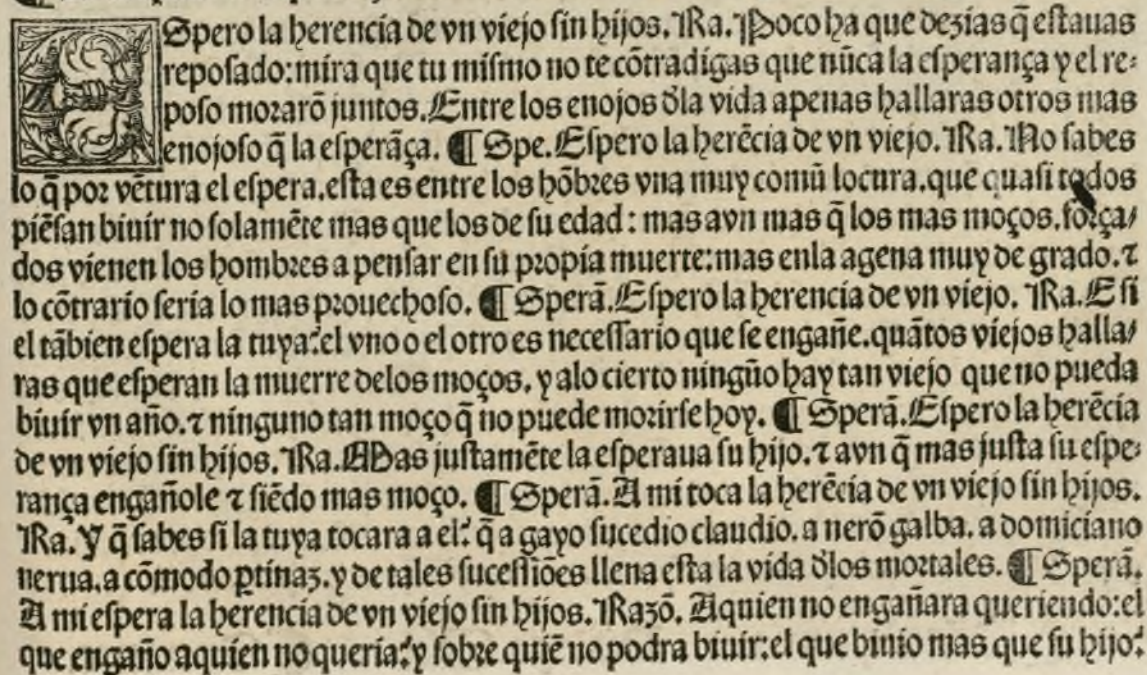 ESpero la herencia de vn viejo sin hijos. Ra. Poco ha que dezias q̃ estauas
reposado: mira que tu mismo no te cõtradigas que nũca la esperança y el re-
poso morarõ juntos. Entre los enojos dla vida apenas hallaras otros mas
enojoso q̃ la esperãça. ¶ Spe. Espero la herẽcia de vn viejo. Ra. No sabes
lo q̃ por vẽtura el espera. esta es entre los hõbres vna muy comũ locura. que quasi todos
piẽsan biuir no solamẽte mas que los de su edad: mas avn mas q̃ los mas moços. força/
dos vienen los hombres a pensar en su propia muerte: mas enla agena muy de grado. ⁊
lo cõtrario seria lo mas prouechoso. ¶ Sperã. Espero la herencia de vn viejo. Ra. E si
el tãbien espera la tuya? el vno o el otro es necessario que se engañe. quãtos viejos halla/
ras que esperan la muerre delos moços. y alo cierto ningũo hay tan viejo que no pueda
biuir vn año. ⁊ ninguno tan moço q̃ no puede morirse hoy. ¶ Sperã. Espero la herẽcia
de vn viejo sin hijos. Ra. Mas justamẽte la esperaua su hijo. ⁊ avn q̃ mas justa su espe-
rança engañole ⁊ siẽdo mas moço. ¶ Sperã. A mi toca la herẽcia de vn viejo sin hijos.
Ra. Y q̃ sabes si la tuya tocara a el? q̃ a gayo sucedio claudio. a nerõ galba. a domiciano
nerua. a cõmodo ꝑtinaz. y de tales sucessiões llena esta la vida dlos mortales. ¶ Sperã.
A mi espera la herencia de vn viejo sin hijos. Razõ. Aquien no engañara queriendo: el
que engaño aquien no queria? y sobre quiẽ no podra biuir: el que biuio mas que su hijo.